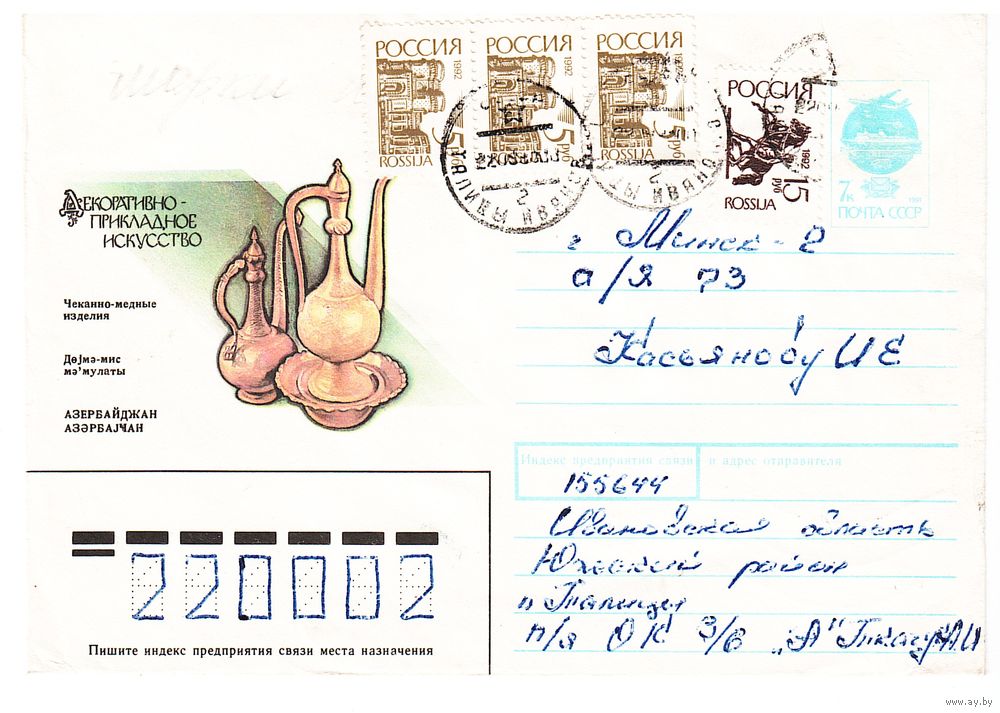 РОССИЯ
1992
5 руб
ROSSIJA
РОССИЯ
1992
5 руб
ROSSIJA
РОССИЯ
1992
5 руб
ROSSIJA
РОССИЯ
1992
15 руб
ROSSIJA
7к
1991
ПОЧТА СССР
ДЕКОРАТИВНО-
ПРИКЛАДНОЕ
ИСКУССТВО
Чеканно-медные
изделия
Дөјмә-мис
мә'мулаты
АЗЕРБАЙДЖАН
АЗӘРБАЈҸАН
г Минск-2
а/я 73
Касьянову И Е
Индекс предприятия связи и адрес отправителя
155644
Ивановская область
Южский район
п Талицы
п/я ОК 3/6 "А"
220002
Пишите индекс предприятия связи места назначения
www.ay.by